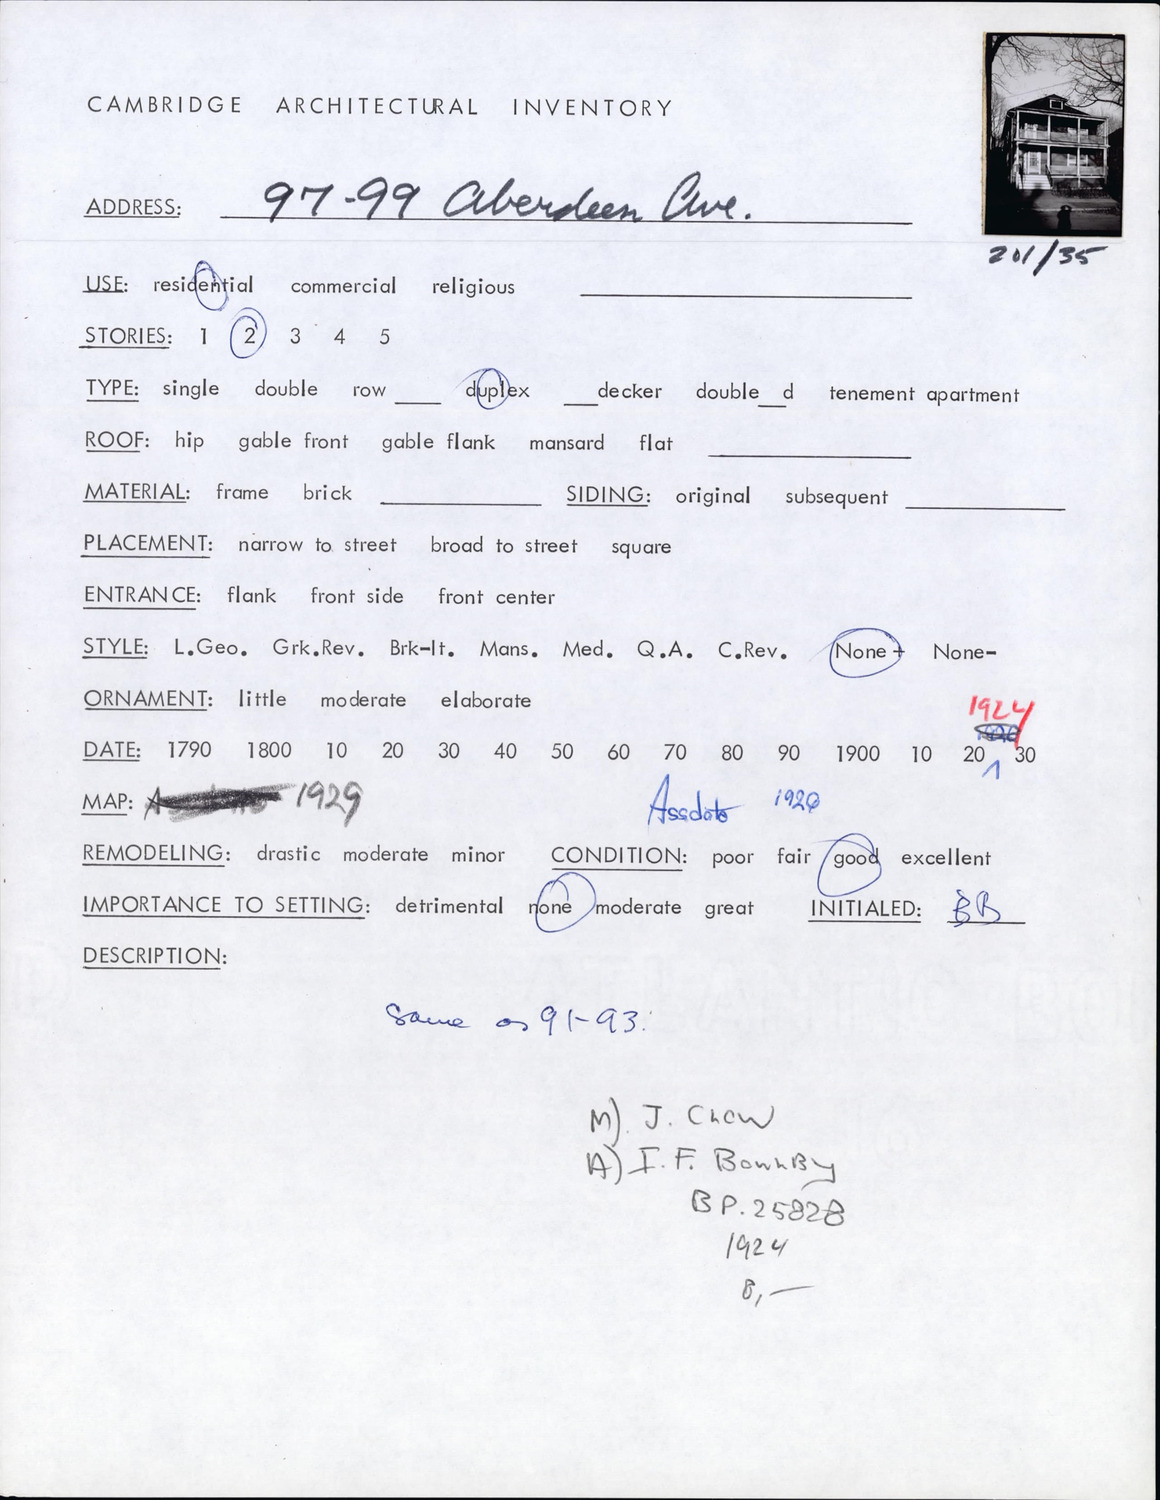 CAMBRIDGE ARCHITECTURAL INVENTORY
ADDRESS: 97-99 Aberdeen Ave.
201/35
USE: residential commercial religious
STORIES: 1 2 3 4 5
TYPE: single double row ___ duplex ___decker double__d tenement apartment
ROOF: hip gable front gable flank mansard flat
MATERIAL: frame brick SIDING: original subsequent
PLACEMENT: narrow to street broad to street square
ENTRANCE: flank front side front center
STYLE: L.Geo. Grk.Rev. Brk-It. Mans. Med. Q.A. C.Rev. None+ None-
ORNAMENT: little moderate elaborate
1924
DATE: 1790 1800 10 20 30 40 50 60 70 80 90 1900 10 20 30
MAP: 1929 1926
REMODELING: drastic moderate minor CONDITION: poor fair good excellent
IMPORTANCE TO SETTING: detrimental none moderate great INITIALED: BB
DESCRIPTION:
Same as 91-93.
M) J. Chow
A) I. F.
BP. 25828
1924
8,—